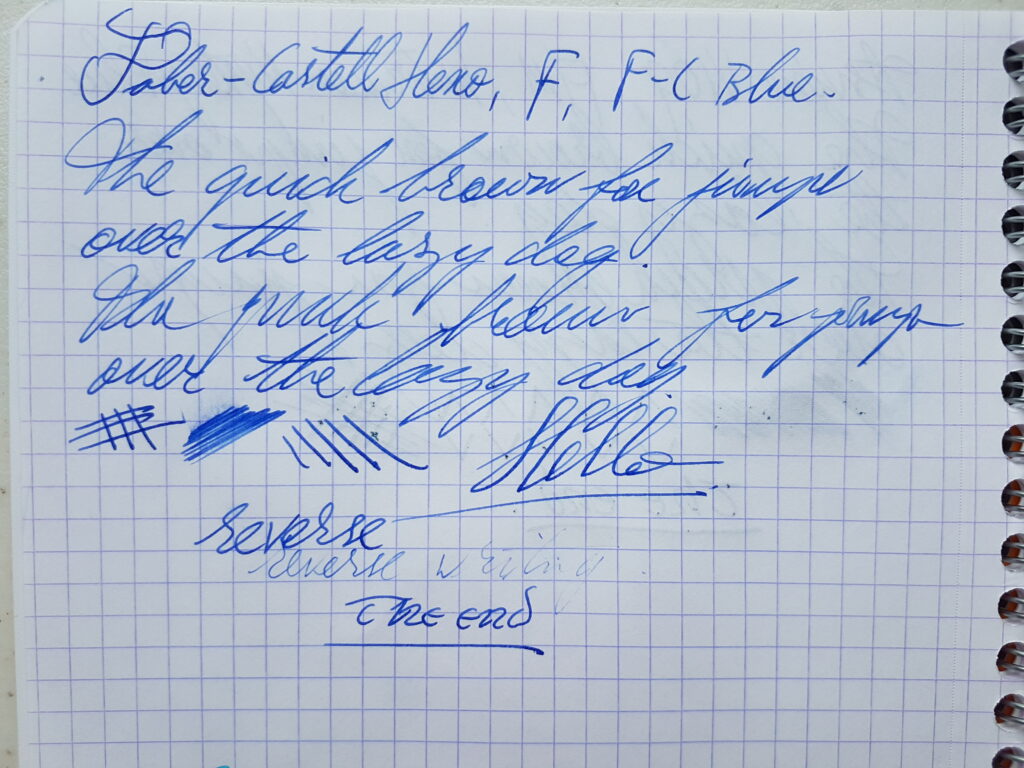 Faber-Castell Hexo, F, F-C Blue.
The quick brown fox jumps
over the lazy dog.
The quick brown fox jumps
over the lazy dog.
Hello
reverse
reverse writing.
The end